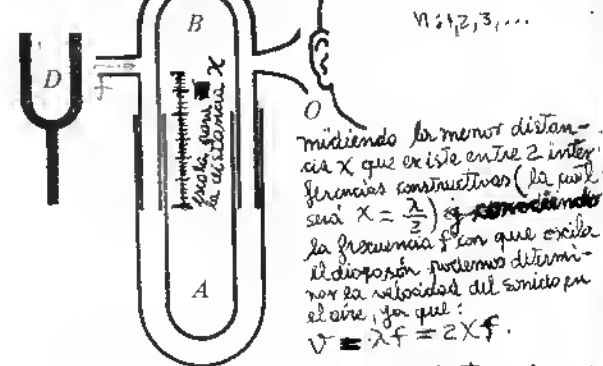 n: 1, 2, 3, ...
B
D
f
escala para
la distancia X
O
A
midiendo la menor distan-
cia X que existe entre 2 inter
ferencias constructivas (la cual
será X = λ/2) y conociendo
la frecuencia f con que oscila
el diapasón podemos determi-
nar la velocidad del sonido en
el aire, ya que:
V = λf = 2Xf.